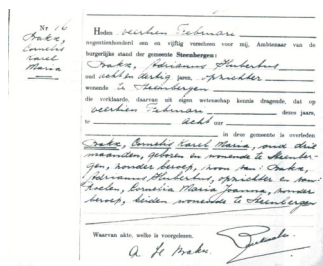 Nr 16
Braks,
Cornelis
Karel
Maria
Heden veertien Februari
negentienhonderd een en vijftig verscheen voor mij, Ambtenaar van de
burgerlijke stand der gemeente Steenbergen:
Braks, Adrianus Hubertus,
oud acht en dertig jaren, opzichter
wonende te Steenbergen
die verklaarde, daarvan uit eigen wetenschap kennis dragende, dat op
veertien Februari dezes jaars,
te acht uur
in deze gemeente is overleden
Braks, Cornelis Karel Maria, oud drie
maanden, geboren en wonende te Steenber-
gen, zonder beroep, zoon van: Braks,
Adrianus Hubertus, opzichter en van:
Cornelia Maria Joanna, zonder
beroep, beiden wonende te Steenbergen
Waarvan akte, welke is voorgelezen.
A H Braks.